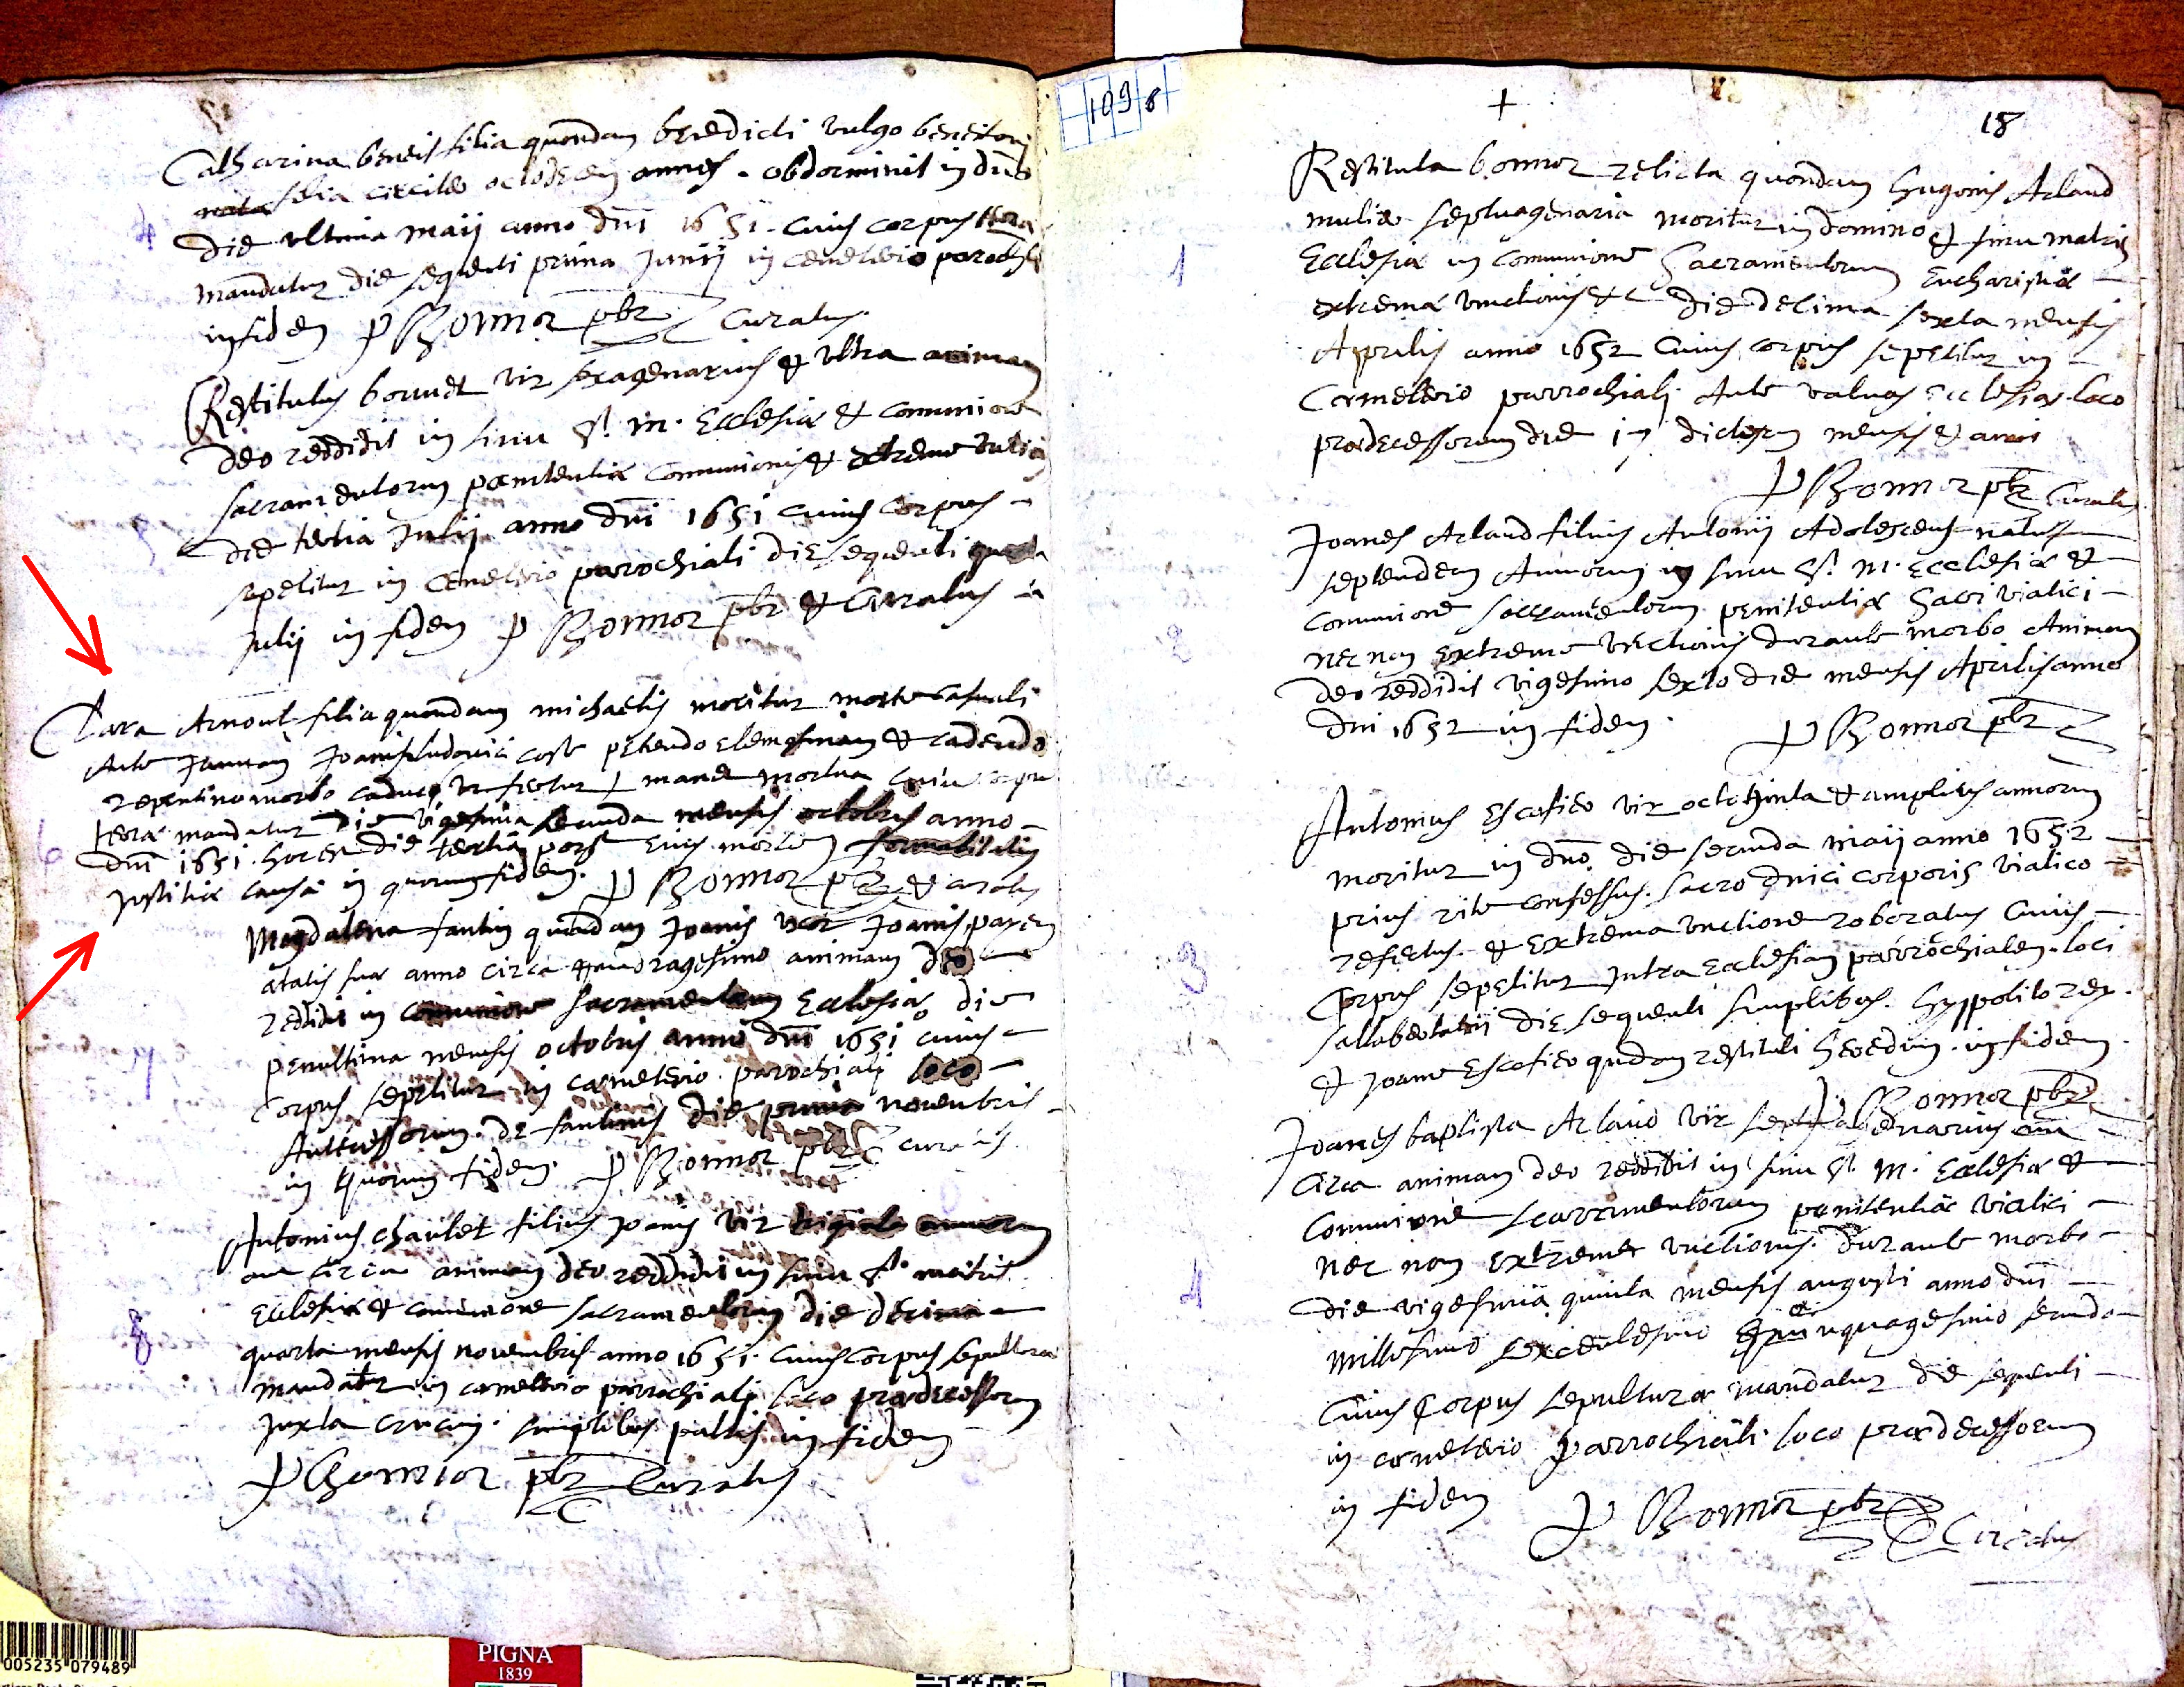 Catharina beneit filia quondam benedicti vulgo beneitoni
nata filia circiter octodecem annos obdormivit in dno
die ultima maii anno dni 1651. cuius corpus terra
mandatur die sequenti prima Junii in cemeterio parochli
in fidem P Bonnior pbr Curatus.
Restitutus borrnet vir sexagenarius & ultra animam
deo reddidit in sinu St. m. Ecclesiæ & comunione
sacramentorum pœnitentiæ comunionis & extreme
die tertia Julii anno dni 1651 cuius corpus
sepelitur in cemeterio parrochiali die sequenti quarta
Julii in fidem P Bonnior pbr & Curatus
Clara Arnoul filia quondam michaelis moritur morte casuali
Ante Januam Joanis ludovici cost petendo elemosinam & cadendo
repentino morbo caduco mane mortua cuius corpus
terræ mandatur Die vigesima secunda mensis octobris anno
dni 1651. hoc est die tertia post eius mortem
Justitiæ causa in quorum fidem. P Bonnior pbr & curatus
Magdalena fantin quondam Joanis uxor Joanis payen
ætatis suæ anno circa quadragesimo animam deo
reddidit in comunione sacramentorum Ecclesiæ die
penultima mensis octobris anno dni 1651 cuius
Corpus sepelitur in cœmeterio parochiali loco
Antecessorum de fantinis die prima novembris
in quorum fidem. P Bonnior pbr curatus
Antonius chaulet filius Joanis vir triginta annorum
circa animam deo reddidit in sinu St. matris
Ecclesiæ & comunione sacramentorum die decima
quarta mensis novembris anno 1651. cuius corpus sepulturæ
mandatur in cœmeterio parrochiali loco prædecessorum
Juxta crucem. simplibus pulsis in fidem
P Bonnior pbr Curatus
109 6
+
18
Restituta bonnior relicta quondam hugonis Arlaud
mulier septuagenaria moritur in domino & sinu matris
Ecclesiæ in comunione Sacramentorum Eucharistiæ
extremæ unctionis &c die decima sexta mensis
Aprilis anno 1652 cuius corpus sepelitur in
Cœmeterio parrochiali Ante valvas Ecclesiæ loco
prædecessorum die 17 dictorum mensis & anni
P Bonnior pbr Curatus
Joanes Arlaud filius Antonii Adolescens natus
septemdem Annorum in sinu St. M. Ecclesiæ &
Comunione sacramentorum penitentiæ Sacri viatici
nec non extreme unctionis durante morbo Animam
deo reddidit vigesimo sexto die mensis Aprilis anno
dni 1652 in fidem. P Bonnior pbr
Antonius Escofier vir octoginta & amplius annorum
moritur in dno die secunda maii anno 1652
prius rite confessus. sacro dnici corporis viatico
refectus. & extrema unctione roboratus cuius
Corpus sepelitur Intra Ecclesiam parrochialem loci
sallabertatii die sequenti simplibus. hyppolito rey.
& Joane Escofier qudam restituti heredum. in fidem
P Bonnior pbr
Joanes baptista Arlaud vir septuagenarius
Circa animam deo reddidit in sinu St. M. Ecclesiæ &
Comunione sacramentorum penitentiæ viatici
nec non extremæ unctionis. durante morbo
die vigesima quinta mensis augusti anno dni
millesimo sexcentesimo quinquagesimo secundo
Cuius Corpus sepulturæ mandatur die sequenti
in cœmeterio parrochiali loco prædecessorum
in fidem P Bonnior pbr Curatus
1
2
3
4
4
6
7
8
005235 079489
PIGNA
1839